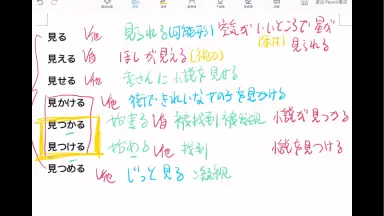 見る V他 見られる(可能形) 空気がいいところで星が見られる
(条件)
見える V自 ほしが見える(視力)
見せる V他 李さんに小説を見せる
見かける V他 街できれいな女の子を見かける
見つかる 始まる V自 被找到 被发现 小説が見つかる
見つける 始める V他 找到 小説を見つける
見つめる V他 じっと見る 凝視